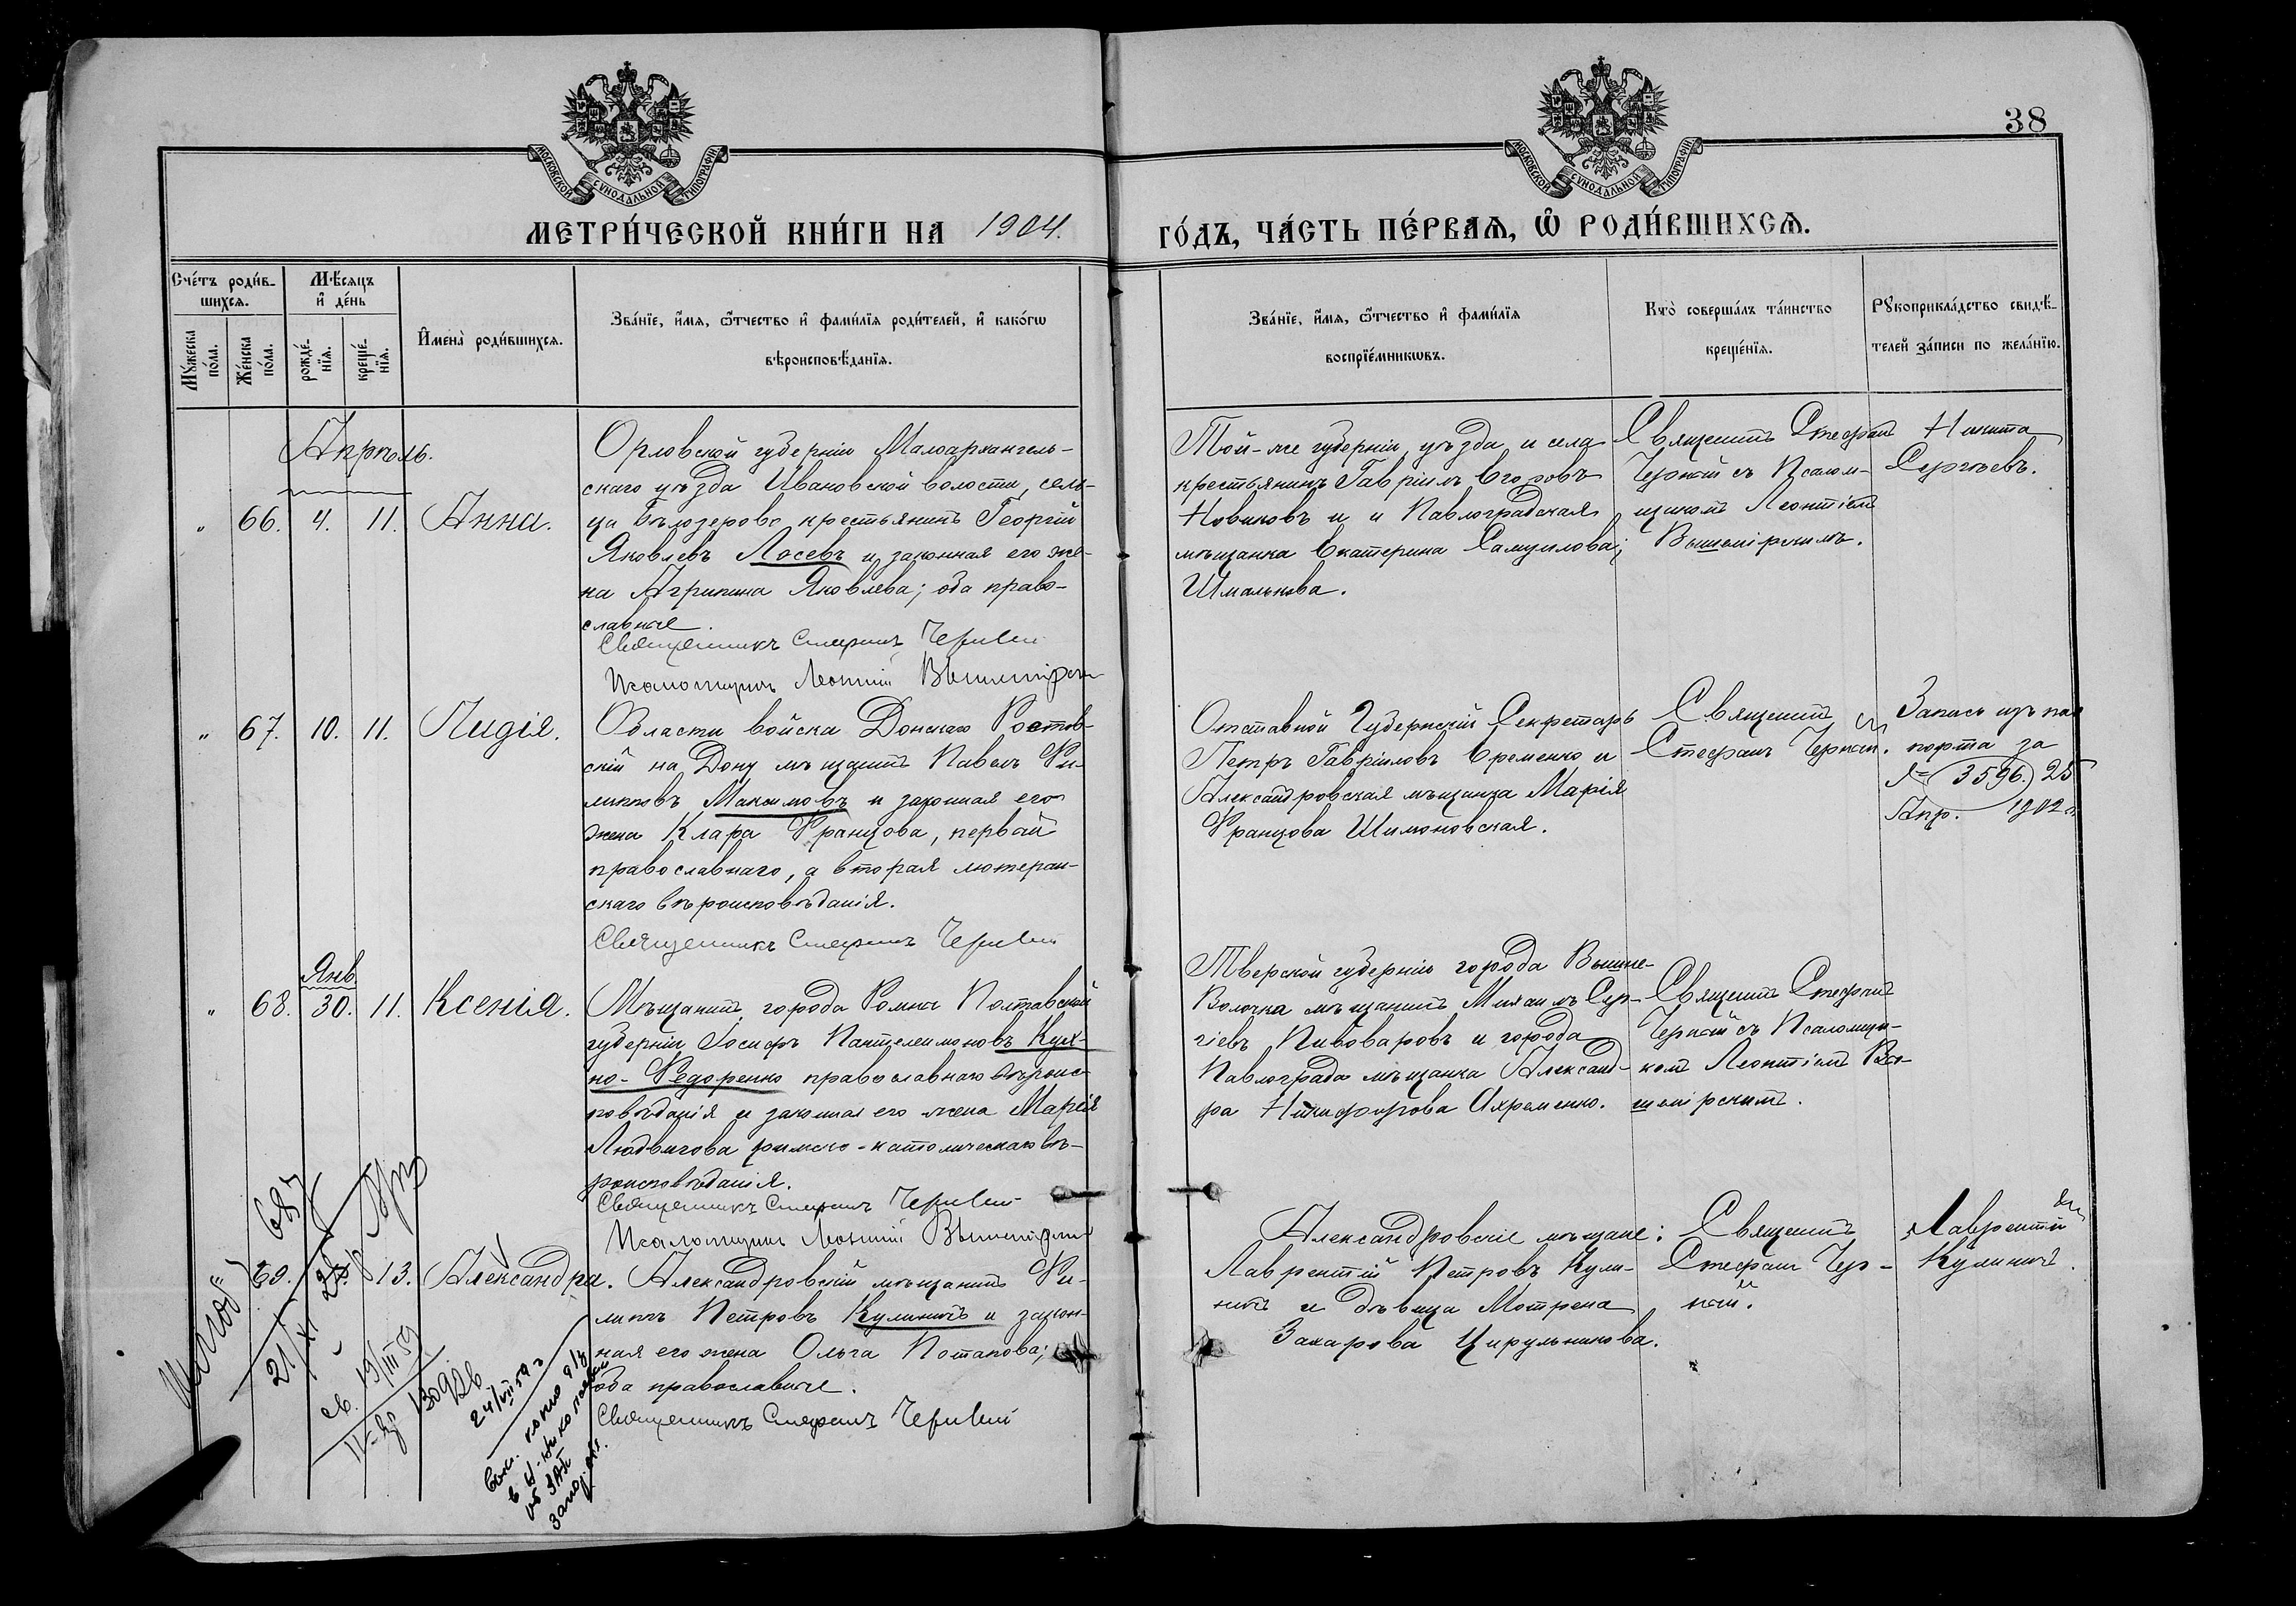 38
МОСКОВСКОЙ СѴНОДАЛЬНОЙ ТИПОГРАФІИ
МОСКОВСКОЙ СѴНОДАЛЬНОЙ ТИПОГРАФІИ
МЕТРИ́ЧЕСКОЙ КНИ́ГИ НА 1904.
ГО́ДЪ, ЧА́СТЬ ПЕ́РВАѦ, Ѽ РОДИ́ВШИХСѦ.
Сче́тъ роди́в-
шихсѧ.
Мѣ́сѧцъ
и҆ де́нь
Мꙋ́жеска
по́ла.
Же́нска
по́ла.
рожде́-
нїѧ.
креще́-
нїѧ.
И҆мена̀ роди́вшихсѧ.
Зва́нїе, и҆́мѧ, ѻ҆́тчество и҆ фами́лїѧ роди́телей, и҆ како́гѡ
вѣроисповѣ́данїѧ.
Зва́нїе, и҆́мѧ, ѻ҆́тчество и҆ фами́лїѧ
воспрїе́мникѡвъ.
Кто̀ соверша́лъ та́инство
креще́нїѧ.
Рꙋкоприкла́дство свидѣ́-
телей за́писи по жела́нїю.
Апрѣль.
" 66. 4. 11. Анна.
Орловской губерніи Малоархангель-
скаго уѣзда Ивановской волости, сель-
ца Бѣлозерово крестьянинъ Георгій
Яковлевъ Лосевъ и законная его же-
на Агрипина Яковлева; оба право-
славные.
Священникъ Стефанъ Черный
Псаломщикъ Леонтій
Той-же губерніи, уѣзда и села
крестьянинъ Гавріилъ Егоровъ
Новиковъ и и Павлоградская
мѣщанка Екатерина Самуилова;
Шмалькова.
Священникъ Стефанъ
Черный съ Псалом-
щикомъ Леонтіемъ
Никита
Сергѣевъ.
" 67. 10. 11. Лидія.
Области войска Донскаго Ростов-
скій на Дону мѣщанинъ Павелъ Фи-
липповъ Максимовъ и законная его
жена Клара Францова, первый
православнаго, а вторая лютеран-
скаго вѣроисповѣданія.
Священникъ Стефанъ Черный
Отставной Губернскій Секретарь
Петръ Гавріиловъ Еременко и
Александровская мѣщанка Марія
Францова Шимоновская.
Священникъ
Стефанъ Черный.
Запись изъ пас
порта за
№ 3596. 25
Апр. 1902 г.
Янв.
" 68. 30. 11. Ксенія.
Мѣщанинъ города Ромны Полтавской
губерніи Іосифъ Пантелеимоновъ Кух-
но-Федоренко православнаго вѣроис-
повѣданія и законная его жена Марія
Людвигова римско-католическаго вѣ-
роисповѣданія.
Священникъ Стефанъ Черный
Псаломщикъ Леонтій
Тверской губерніи города Вышне-
Волочка мѣщанинъ Михаилъ Сер-
гіевъ Пивоваровъ и города
Павлограда мѣщанка Александ-
ра Никифорова Ахременко.
Священникъ Стефанъ
Черный съ Псаломщи-
комъ Леонтіемъ
69. 13. Александра.
Александровскій мѣщанинъ Фи-
липпъ Петровъ Кулиничъ и закон-
ная его жена Ольга Потапова;
оба православные.
Священникъ Стефанъ Черный
Александровскіе мѣщане:
Лаврентій Петровъ Кули-
ничъ и дѣвица Мотрена
Захарова Цирульникова.
Священникъ
Стефанъ Чер-
ный.
Лаврентій
Кулиничъ.
687
21/XI
св. 19/III 59
130926
24/VII 59 г